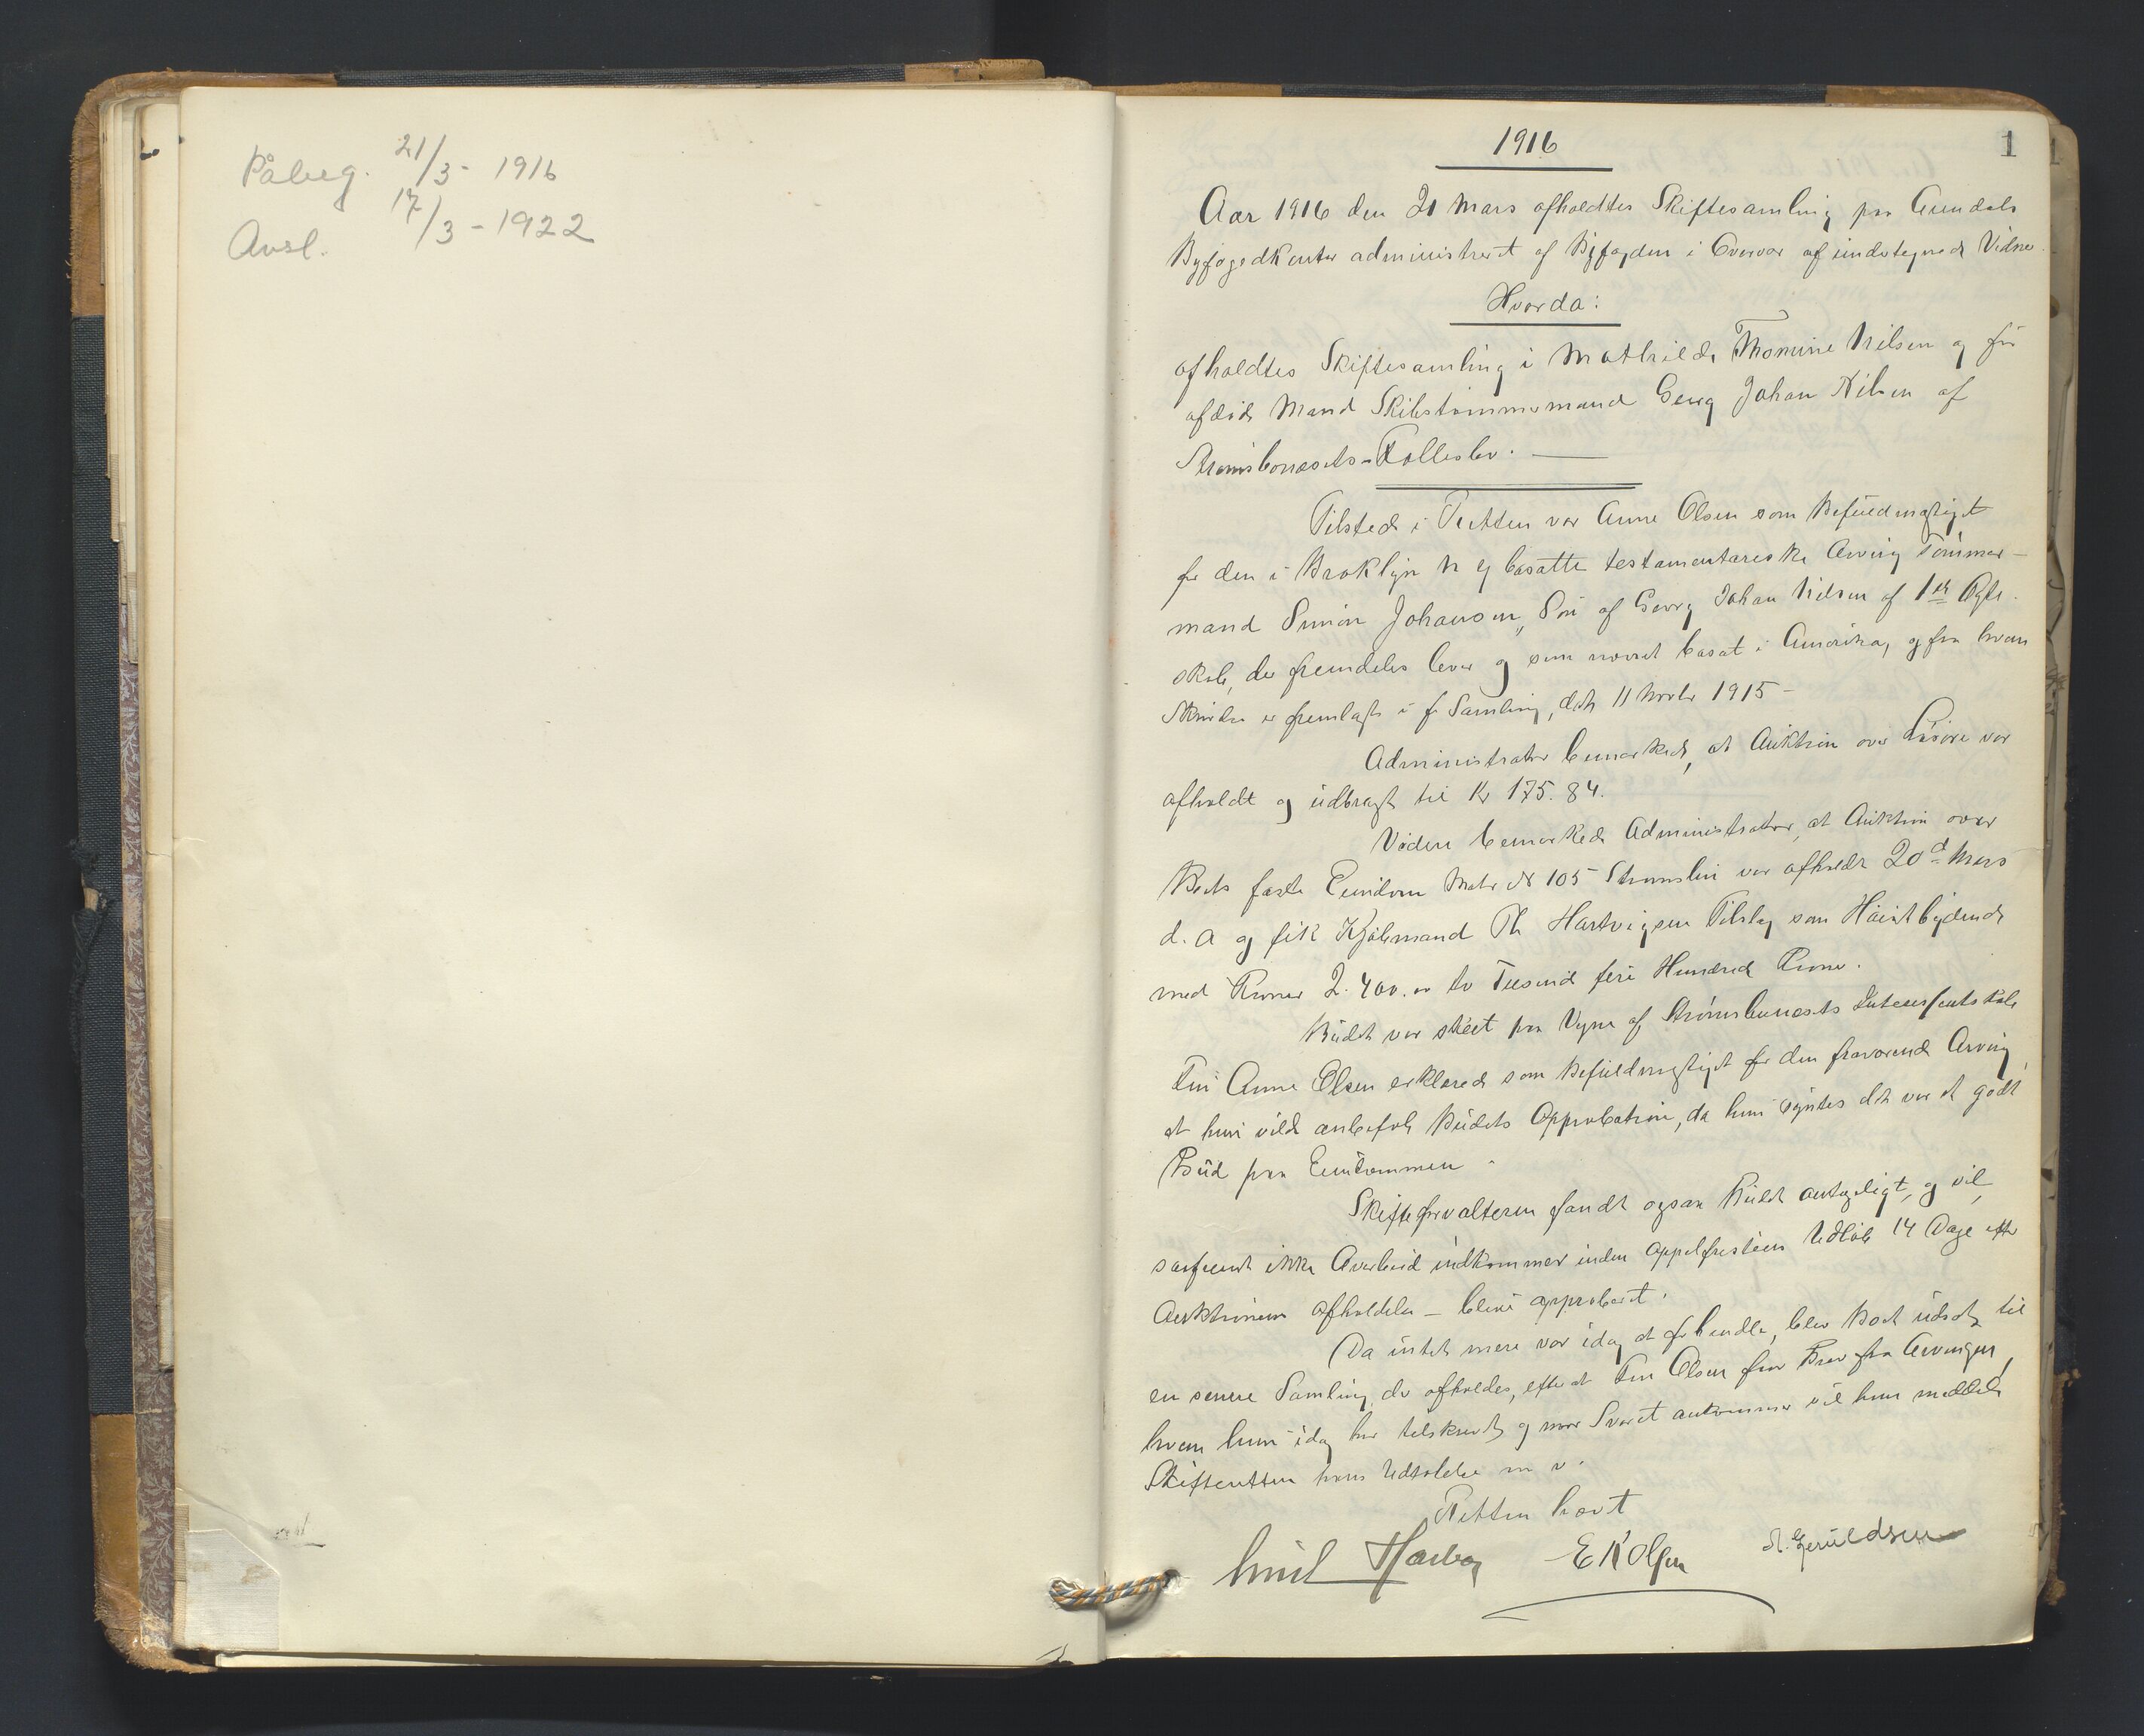 Påbeg. 21/3 - 1916
Avsl. 17/3 - 1922
1916
1
Aar 1916 den 21 Mars afholdtes Skiftesamling paa Arendals
Byfogedkontor administreret af Byfogden i Overvær af undertegnede Vidner.
Hvorda:
afholdtes Skiftesamling i Mathilde Thomine Nilsen og før
afdøde Mand Skibstømmermand Georg Johan Nilsen af
Strømsbonæsets-Fællesbo.
Tilstede i Retten var Anne Olsen som Befuldmægtiget
for den i Broklyn N Y bosatte testamentariske Arving Tømmer-
mand Simon Johansen, Søn af Georg Johan Nilsen af 1ste Ægte-
skab, der fremdeles lever og som nævnt bosat i Amerika, og fra hvem
Skrivelse er fremlagt i f Samling, dat 11 Novbr 1915 -
Administrator bemærkede, at Auktion over Løsøre var
afholdt og udbragt til Kr 175.84.
Videre bemærkede Administrator, at Auktion over
Boets faste Eiendom Matr N 105 Strømsbu var afholdt 20de Mars
d. A og fik Kjøbmand Th Hartvigsen Tilslag som Høistbydende
med Kroner 2.400.00 to Tusind fire Hundred Kroner.
Budet var skeet paa Vegne af Strømsbunæsets Interessentskab
Fru Anne Olsen erklærede som Befuldmægtiget for den fraværende Arving,
at hun vilde anbefale Budets Approbation, da hun syntes det var et godt
Bud paa Eiendommen.
Skifteforvalteren fandt ogsaa Budet antageligt, og vil
saafremt ikke Overbud indkommer inden Appelfristens Udløb 14 Dage efter
Auktionens Afholdelse - blive approberet.
Da intet mere var idag at forhandle, blev Boet udsat til
en senere Samling, der afholdes, efter at Fru Olsen faar Brev fra Arvingen,
hvem hun idag har tilskrevet, og naar Svaret ankommer vil hun meddele
Skifteretten hans Udtalelse m v.
Retten hævet
Emil Harbo E K Olsen N. Gjeruldsen